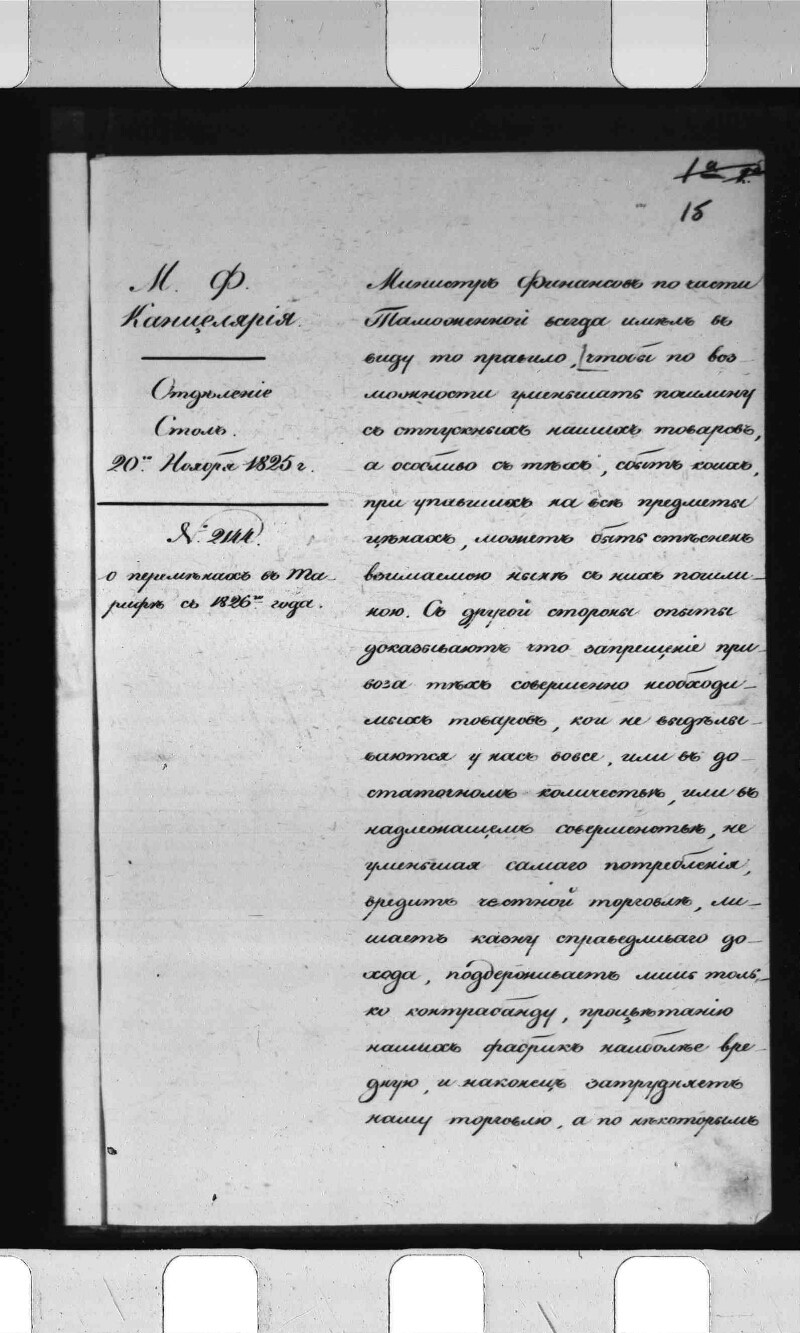 15
М. Ф.
Канцелярія.
Отдѣленіе
Столъ.
20го Ноября 1825 г.
№ 2144.
о перемѣнахъ въ Та-
рифѣ съ 1826го года.
Министръ Финансовъ по части
Таможенной всегда имѣлъ въ
виду то правило, чтобы по воз
можности уменьшать пошлину
съ отпускныхъ нашихъ товаровъ,
а особливо съ тѣхъ, сбытъ коихъ,
при упавшихъ на всѣ предметы
цѣнахъ, можетъ быть стѣсненъ
взимаемою нынѣ съ нихъ пошли-
ною. Съ другой стороны опыты
доказываютъ что запрещеніе при-
воза тѣхъ совершенно необходи-
мыхъ товаровъ, кои не выдѣлы-
ваются у насъ вовсе, или въ до-
статочномъ количествѣ, или въ
надлежащемъ совершенствѣ, не
уменьшая самаго потребленія,
вредитъ честной торговлѣ, ли-
шаетъ казну справедливаго до-
хода, поддерживаетъ лишь толь-
ко контрабанду, процвѣтанію
нашихъ фабрикъ наиболѣе вре-
дную, и наконецъ затрудняетъ
нашу торговлю, а по нѣкоторымъ